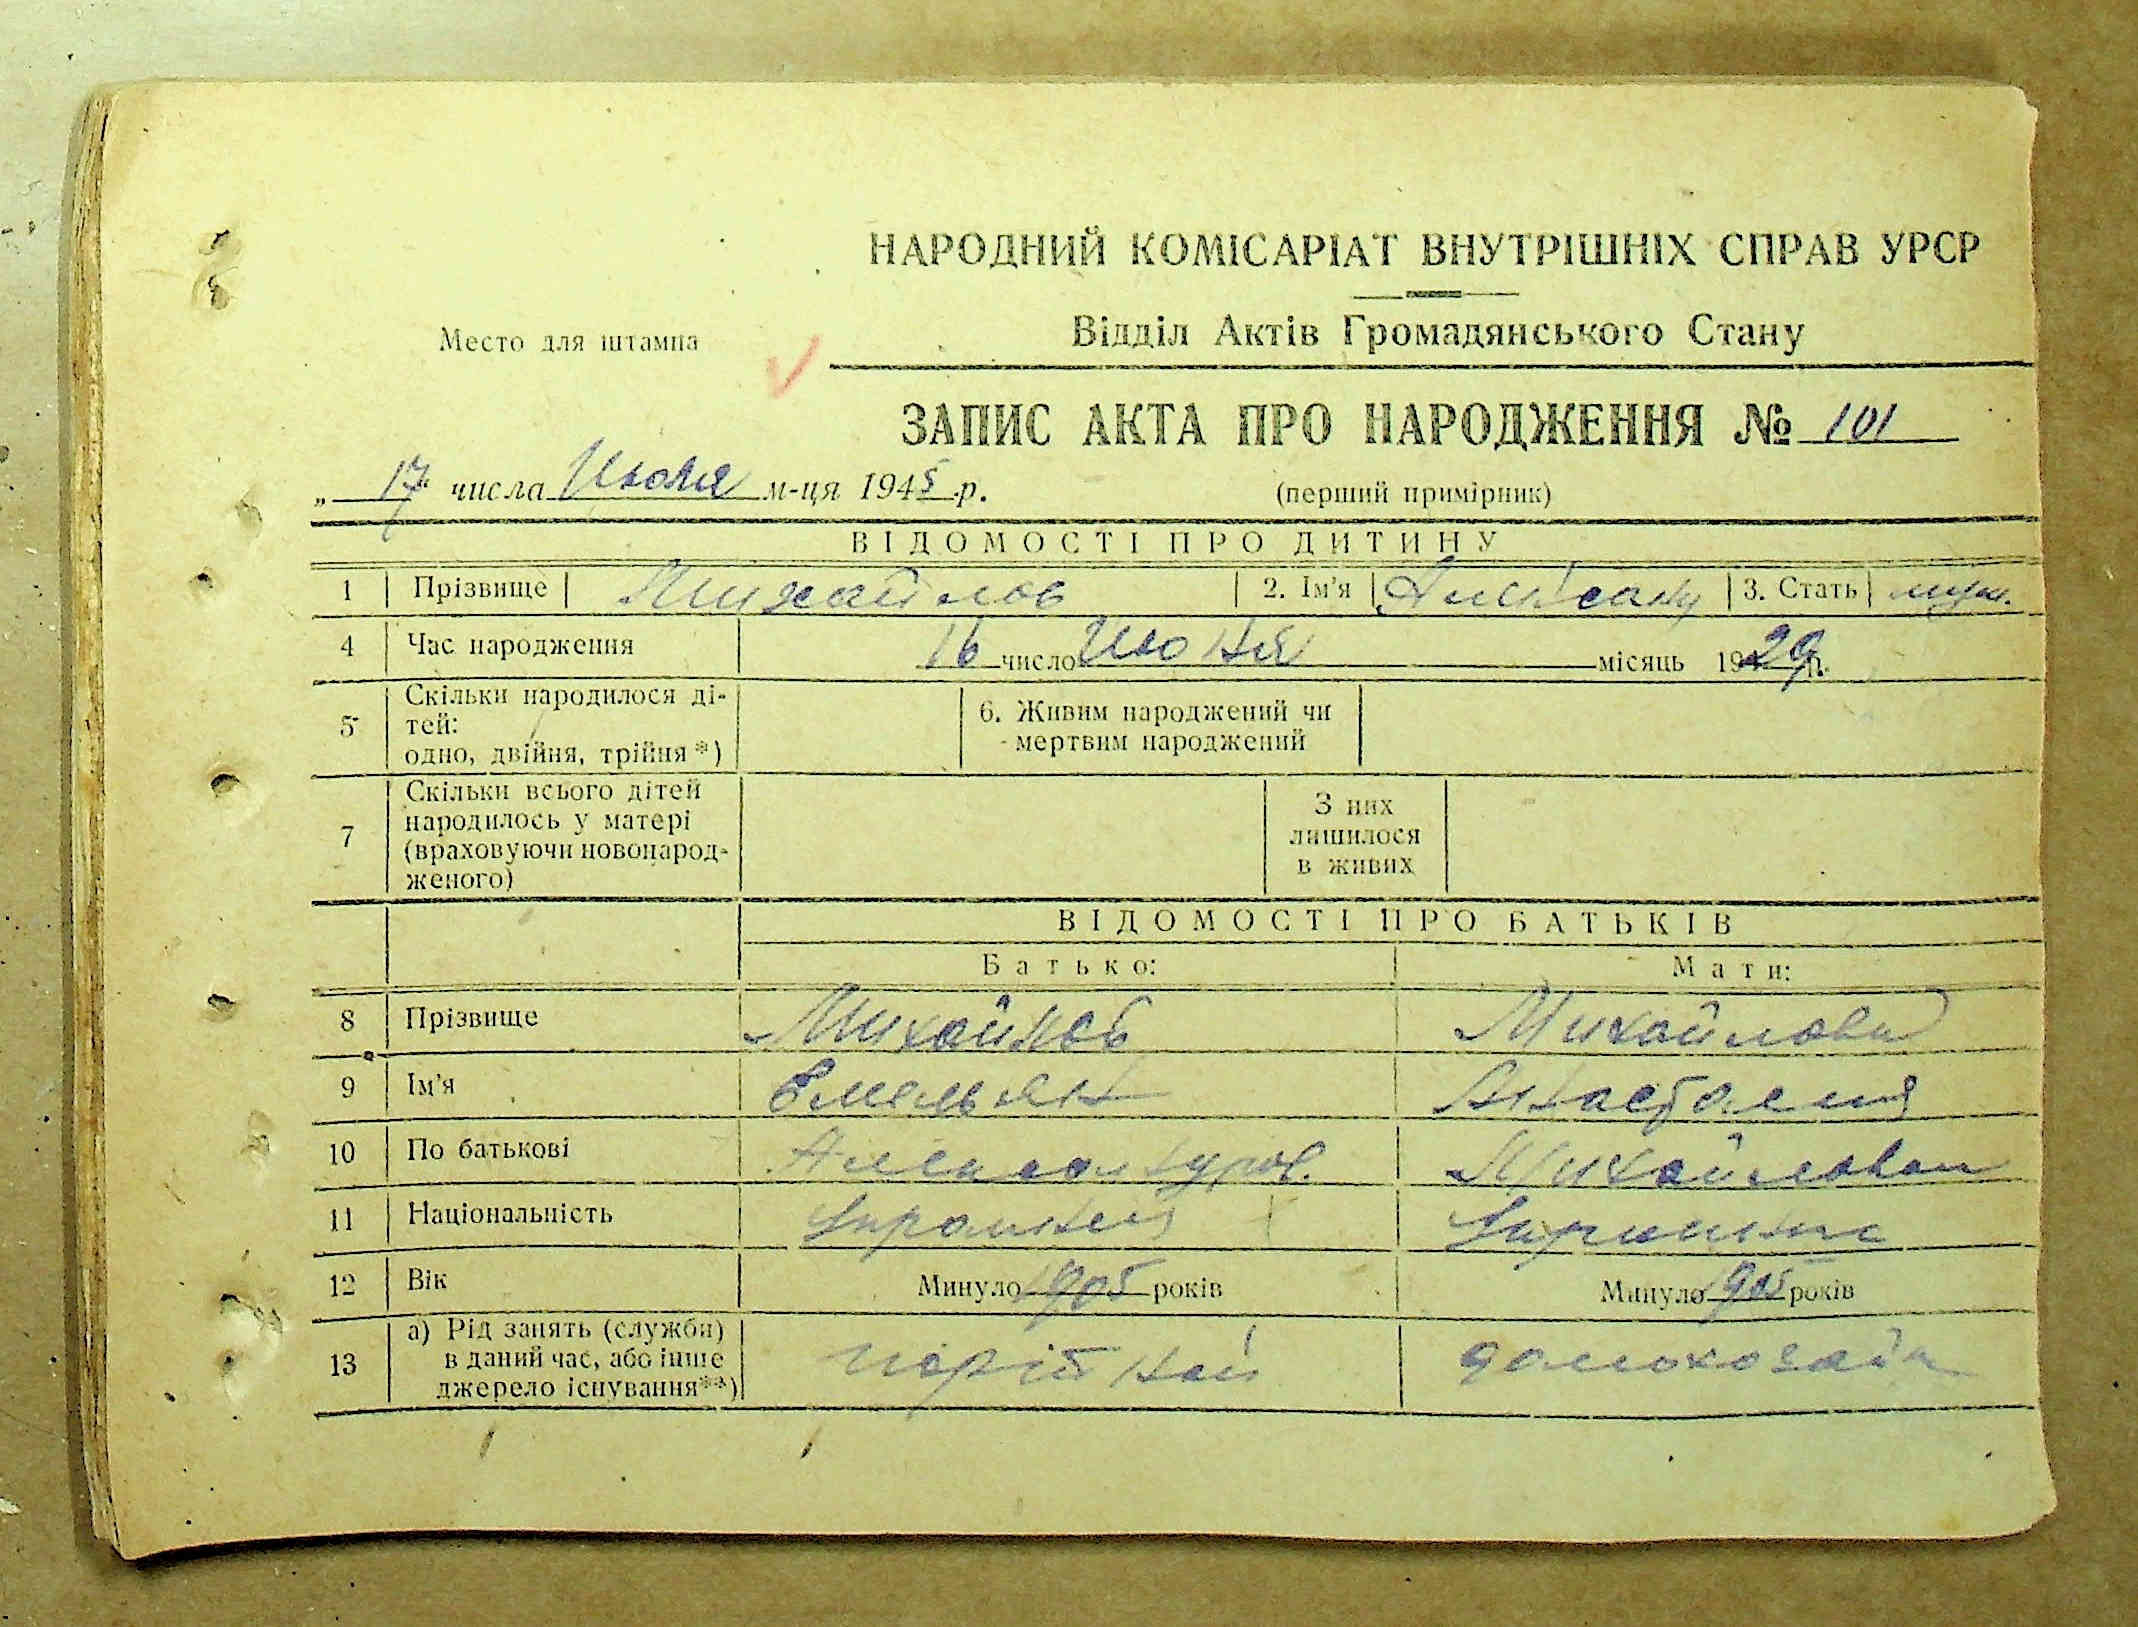 НАРОДНИЙ КОМІСАРІАТ ВНУТРІШНІХ СПРАВ УРСР
Место для штампа
Відділ Актів Громадянського Стану
ЗАПИС АКТА ПРО НАРОДЖЕННЯ № 101
„ 17 " числа Июля м-ця 1945 р.
(перший примірник)
ВІДОМОСТІ ПРО ДИТИНУ
1 Прізвище Михайлов 2. Ім'я 3. Стать муж.
4 Час народження 16 число Июня місяць 1929 р.
5 Скільки народилося ді-
тей:
одно, двійня, трійня *)
6. Живим народжений чи
мертвим народжений
7 Скільки всього дітей
народилось у матері
(враховуючи новонарод-
женого)
З них
лишилося
в живих
ВІДОМОСТІ ПРО БАТЬКІВ
Батько: Мати:
8 Прізвище Михайлов Михайлова
9 Ім'я Емельян Анастасия
10 По батькові Михайловна
11 Національність
12 Вік Минуло 1905 років Минуло 1905 років
13 а) Рід занять (служби)
в даний час, або інше
джерело існування**)
домохозайк